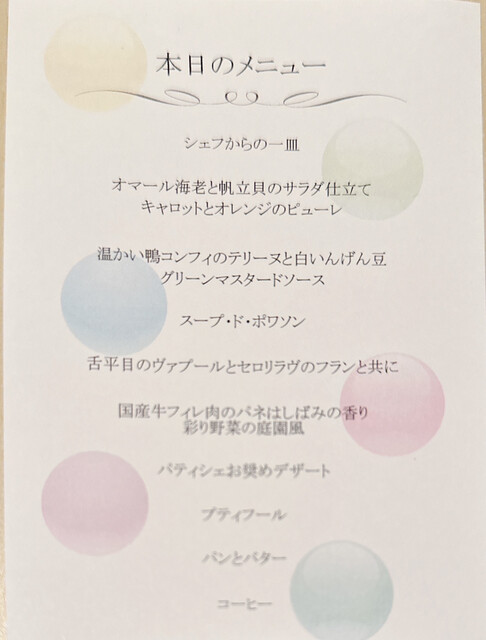 本日のメニュー
シェフからの一皿
オマール海老と帆立貝のサラダ仕立て
キャロットとオレンジのピューレ
温かい鴨コンフィのテリーヌと白いんげん豆
グリーンマスタードソース
スープ・ド・ポワソン
舌平目のヴァプールとセロリラヴのフランと共に
国産牛フィレ肉のパネはしばみの香り
彩り野菜の庭園風
パティシェお奨めデザート
プティフール
パンとバター
コーヒー